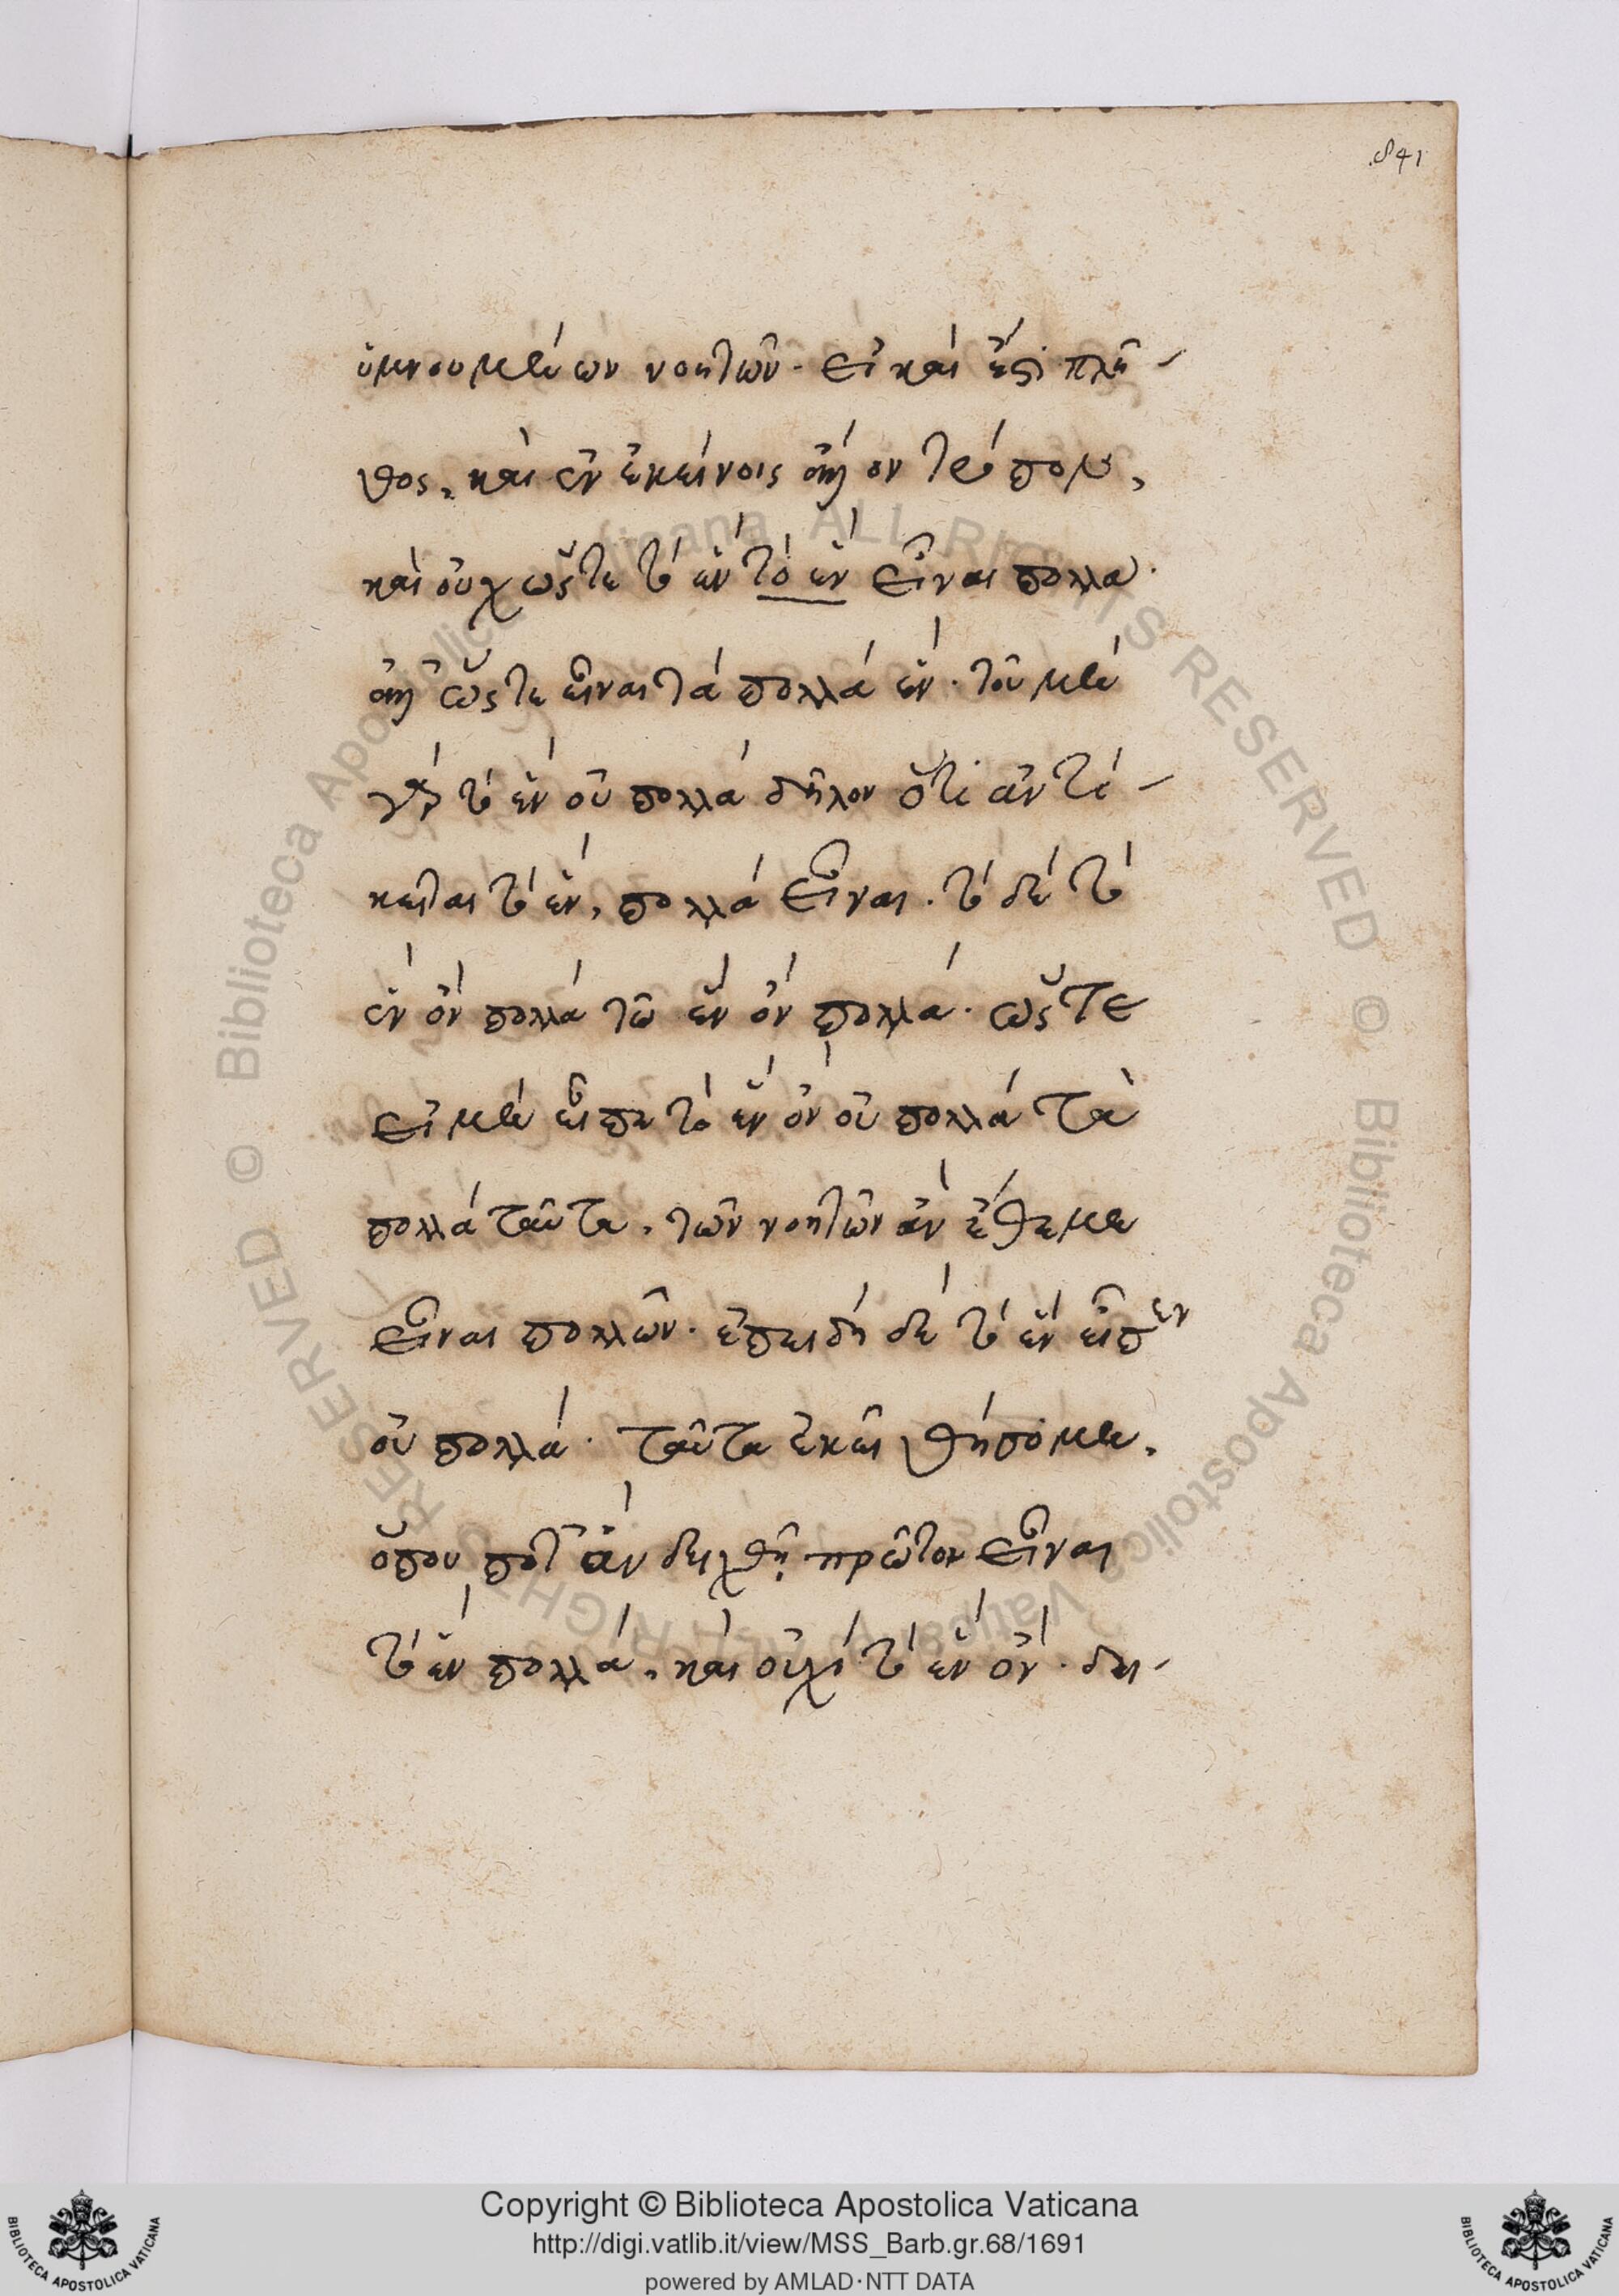 841
ὑμνουμένων νοητῶν· εἰ καί ἔστι πλῆ-
θος, καὶ ἐν ἐκείνοις ἀλλ' ὃν τρόπον,
καὶ οὐχ ὥστε τό ἕν τὸ ἕν εἶναι πολλά·
ἀλλ' ὥστε εἶναι τά πολλά ἕν· τοῦ μέν
γάρ τό ἕν οὐ πολλά δῆλον ὅτι ἀντί-
κειται τό ἕν, πολλά εἶναι. τό δέ τό
ἕν ὄν πολλά τῶ ἕν ὄν πολλά· ὥστε
εἰ μέν εἶπε τό ἕν ὄν οὐ πολλά τὰ
πολλά ταῦτα, τῶν νοητῶν ἄν ἔθεμεν
εἶναι πολλῶν· ἐπειδή δέ τό ἕν εἶπεν
οὐ πολλά· ταῦτα ἐκεῖ θήσομεν,
ὅπου ποτ' ἄν δειχθῇ πρῶτον εἶναι
τό ἕν πολλά, καί οὐχί τό ἕν ὄν· δει-
Copyright © Biblioteca Apostolica Vaticana
http://digi.vatlib.it/view/MSS_Barb.gr.68/1691
powered by AMLAD·NTT DATA
BIBLIOTECA APOSTOLICA VATICANA
BIBLIOTECA APOSTOLICA VATICANA